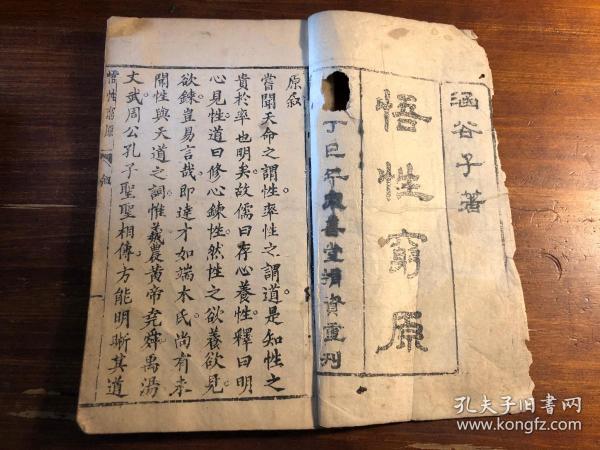 涵谷子著
悟性窮原
丁巳年眾善堂捐資重刋
原叙
嘗聞天命之謂性。率性之謂道。是知性之
貴於率也明矣。故儒曰存心養性。釋曰明
心見性。道曰修心鍊性。然性之欲養欲見
欲鍊。豈易言哉。即達才如端木氏。尚有未
聞性與天道之詞。惟羲農黃帝堯舜禹湯
文武周公孔子。聖聖相傳。方能明晰其道
悟性窮原
叙
孔夫子旧书网
www.kongfz.com